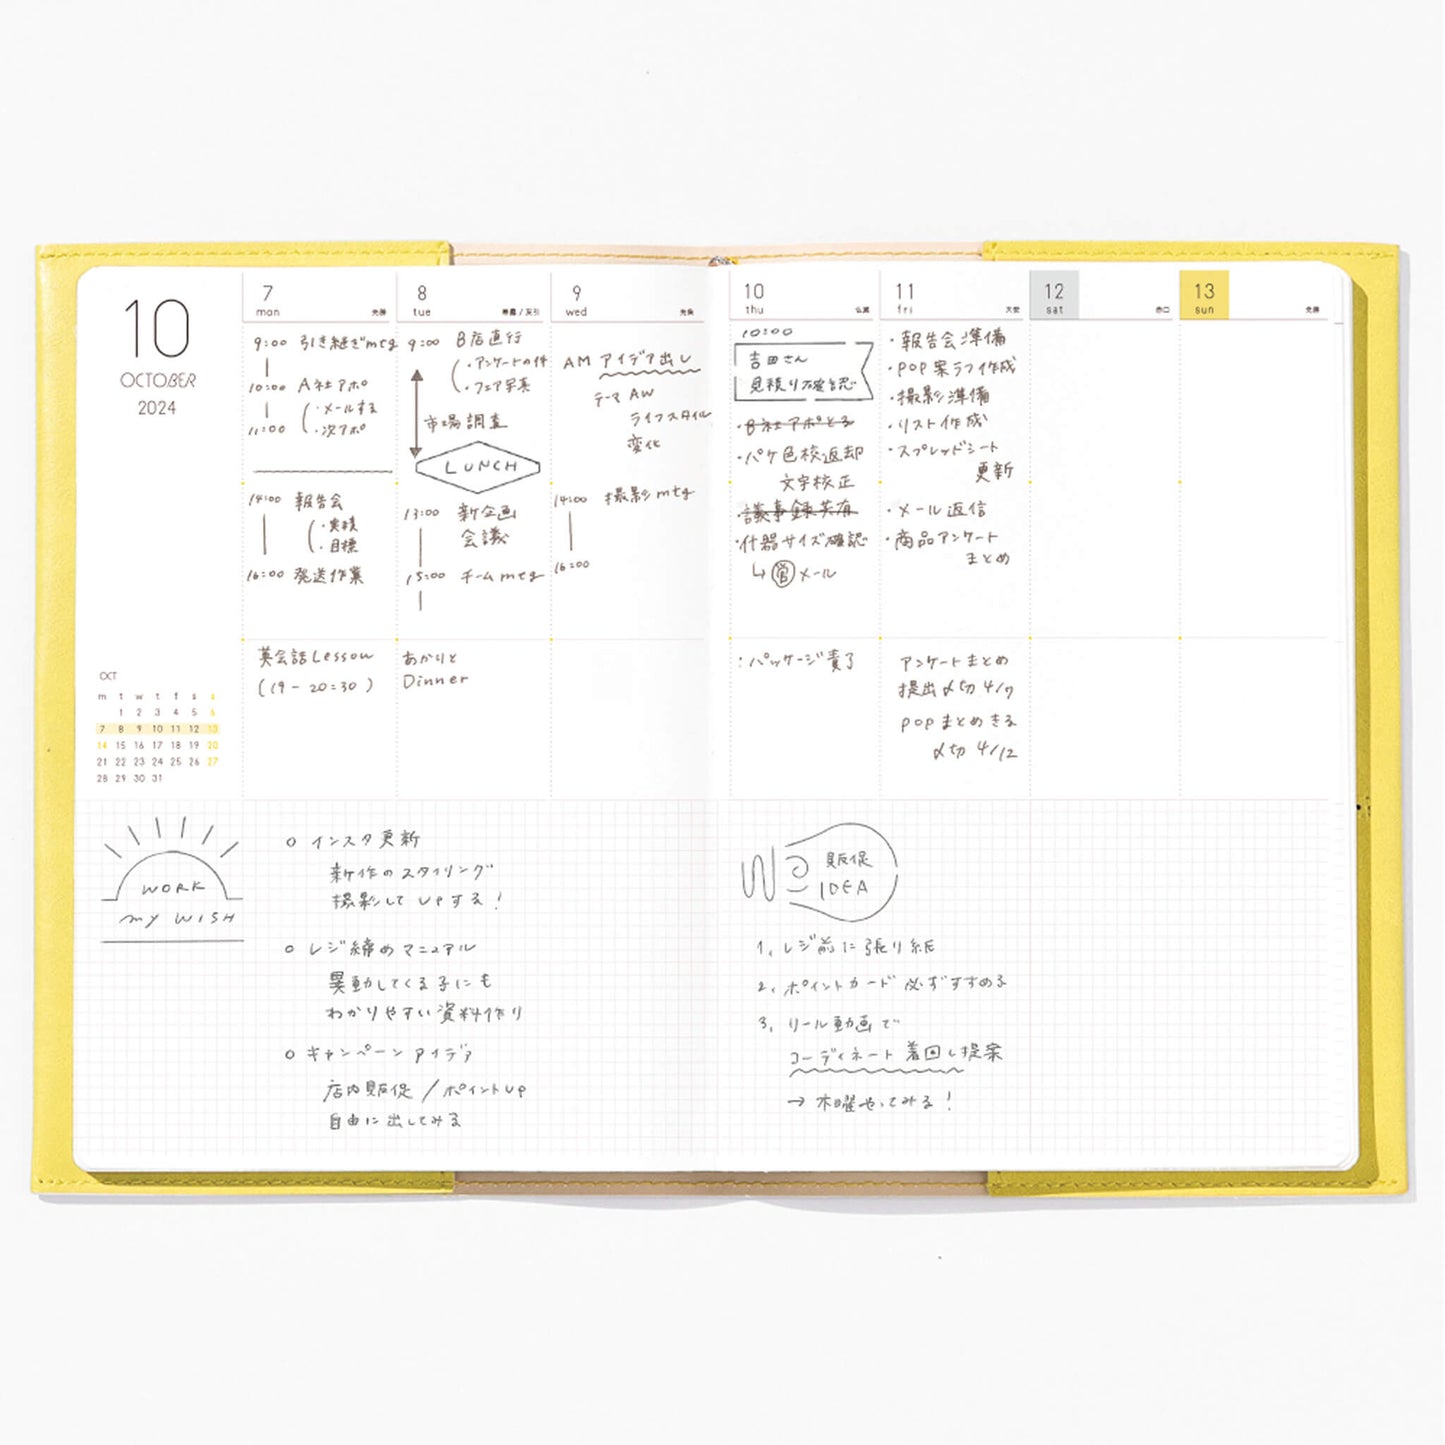 10
OCTOBER
2024
7
mon
先勝
9:00 引き継ぎmtg
10:00 A社アポ
・メールする
11:00 ・次アポ
14:00 報告会
・実積
・目標
16:00 発送作業
英会話Lesson
(19-20:30)
8
tue
寒露/友引
9:00 B店直行
・アンケートの件
・フェア写真
市場調査
LUNCH
13:00 新企画
会議
15:00 チームmtg
あかりと
Dinner
9
wed
先負
AM アイデア出し
テーマ AW
ライフスタイル
変化
14:00 撮影mtg
16:00
10
thu
仏滅
10:00
吉田さん
見積り確認
・B社アポとる
・パケ色校返却
文字校正
・議事録共有
・什器サイズ確認
↳ 営 メール
:パッケージ責了
11
fri
大安
・報告会準備
・POP案ラフ作成
・撮影準備
・リスト作成
・スプレッドシート
更新
・メール返信
・商品アンケート
まとめ
アンケートまとめ
提出〆切 4/17
POPまとめきる
〆切 4/12
12
sat
赤口
13
sun
先勝
OCT
m t w t f s s
1 2 3 4 5 6
7 8 9 10 11 12 13
14 15 16 17 18 19 20
21 22 23 24 25 26 27
28 29 30 31
WORK
MY WISH
○ インスタ更新
新作のスタイリング
撮影して UPする!
○ レジ締めマニュアル
異動してくる子にも
わかりやすい資料作り
○ キャンペーンアイデア
店内販促/ポイントUP
自由に出してみる
販促
IDEA
1, レジ前に張り紙
2, ポイントカード 必ずすすめる
3, リール動画で
コーディネート 着回し提案
→ 木曜やってみる!